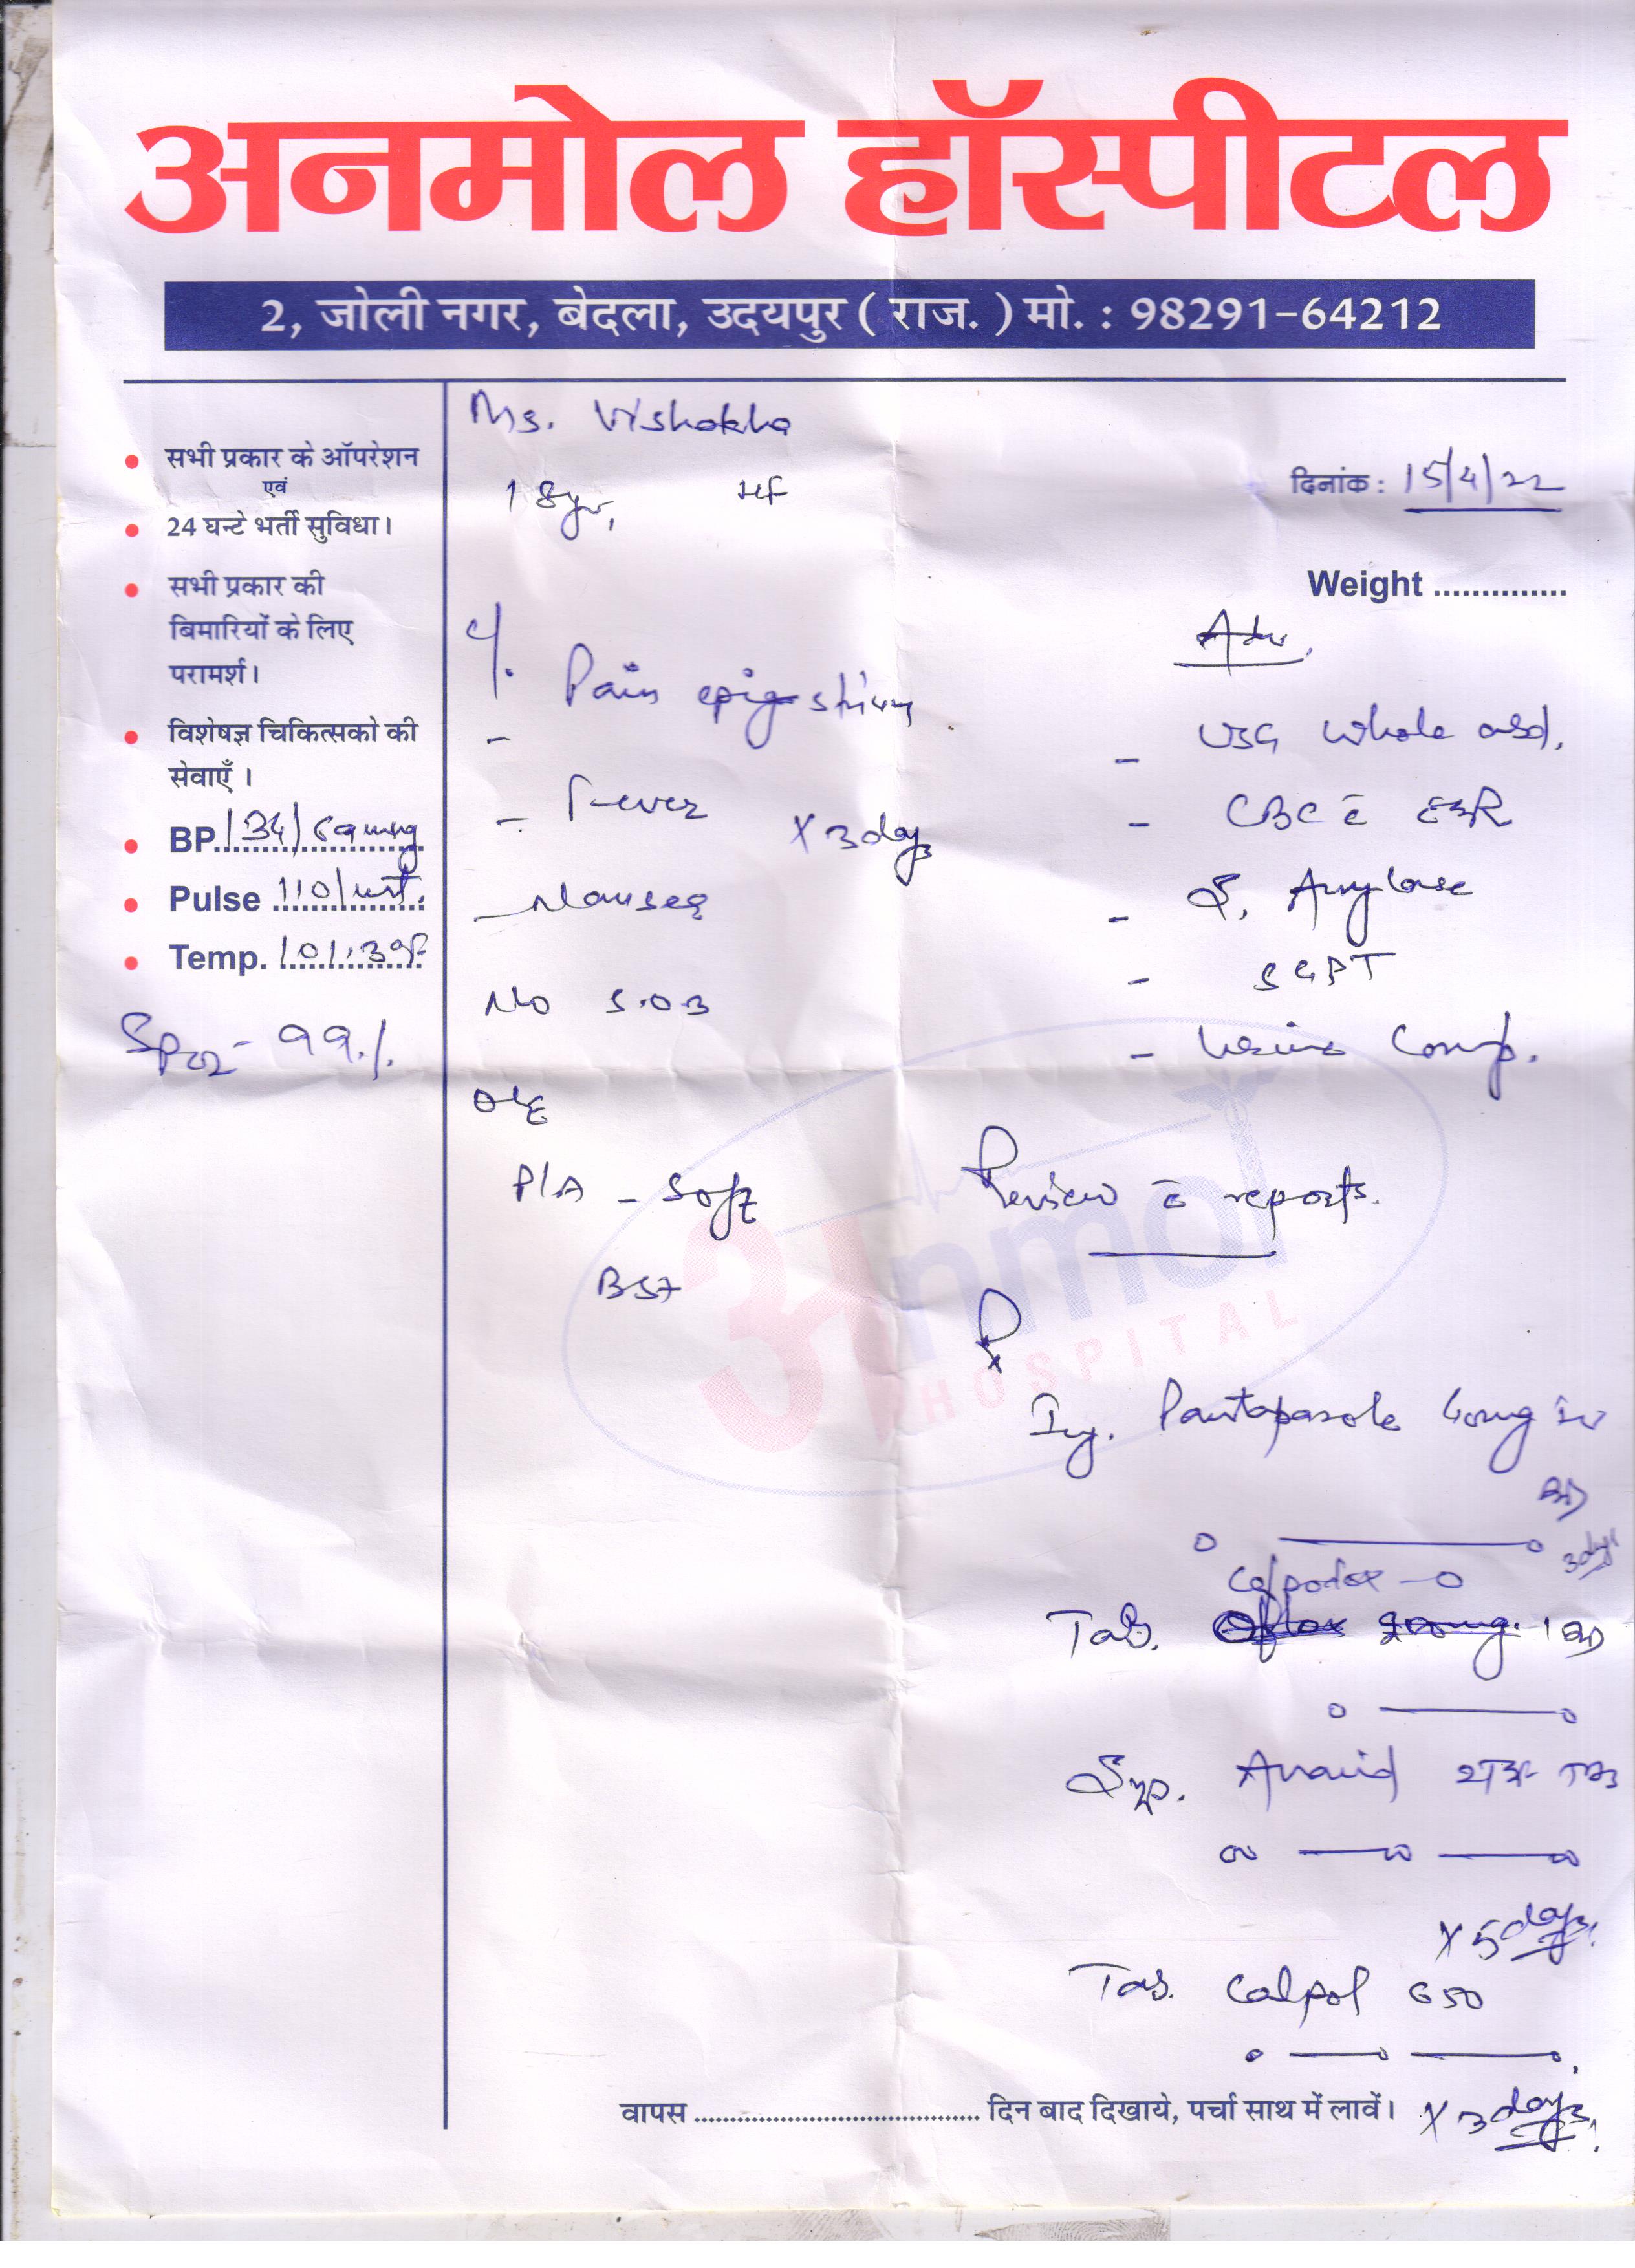 अनमोल हॉस्पीटल
2, जोली नगर, बेदला, उदयपुर ( राज. ) मो. : 98291-64212
• सभी प्रकार के ऑपरेशन
एवं
• 24 घन्टे भर्ती सुविधा।
• सभी प्रकार की
बिमारियों के लिए
परामर्श।
• विशेषज्ञ चिकित्सको की
सेवाएँ ।
• BP 134/ mmg
• Pulse 110/mt.
• Temp. 101.3°F
SPO2 - 99%
Ms. Vishakha
18yr,
दिनांक : 15/4/22
Weight ..............
C/o
- Pain epigastrium
- Fever x 3 days
- Nausea
No S.O.B
O/E
P/A - Soft
BS+
Adv.
- USG Whole abd.
- CBC c̄ ESR
- S. Amylase
- SGPT
- Urine Comp.
Review c̄ reports.
Rx
Inj. Pantaprazole 40mg IV
BD
o ——— o 3 days
Cefpodox - O
Tab. Oflox 200mg. 1 BD
o ——— o
Syp. TDS
x 5 days.
Tab. Calpol 650
o — o — o
x 3 days.
वापस .......................................... दिन बाद दिखाये, पर्चा साथ में लावें।
अnmol
HOSPITAL